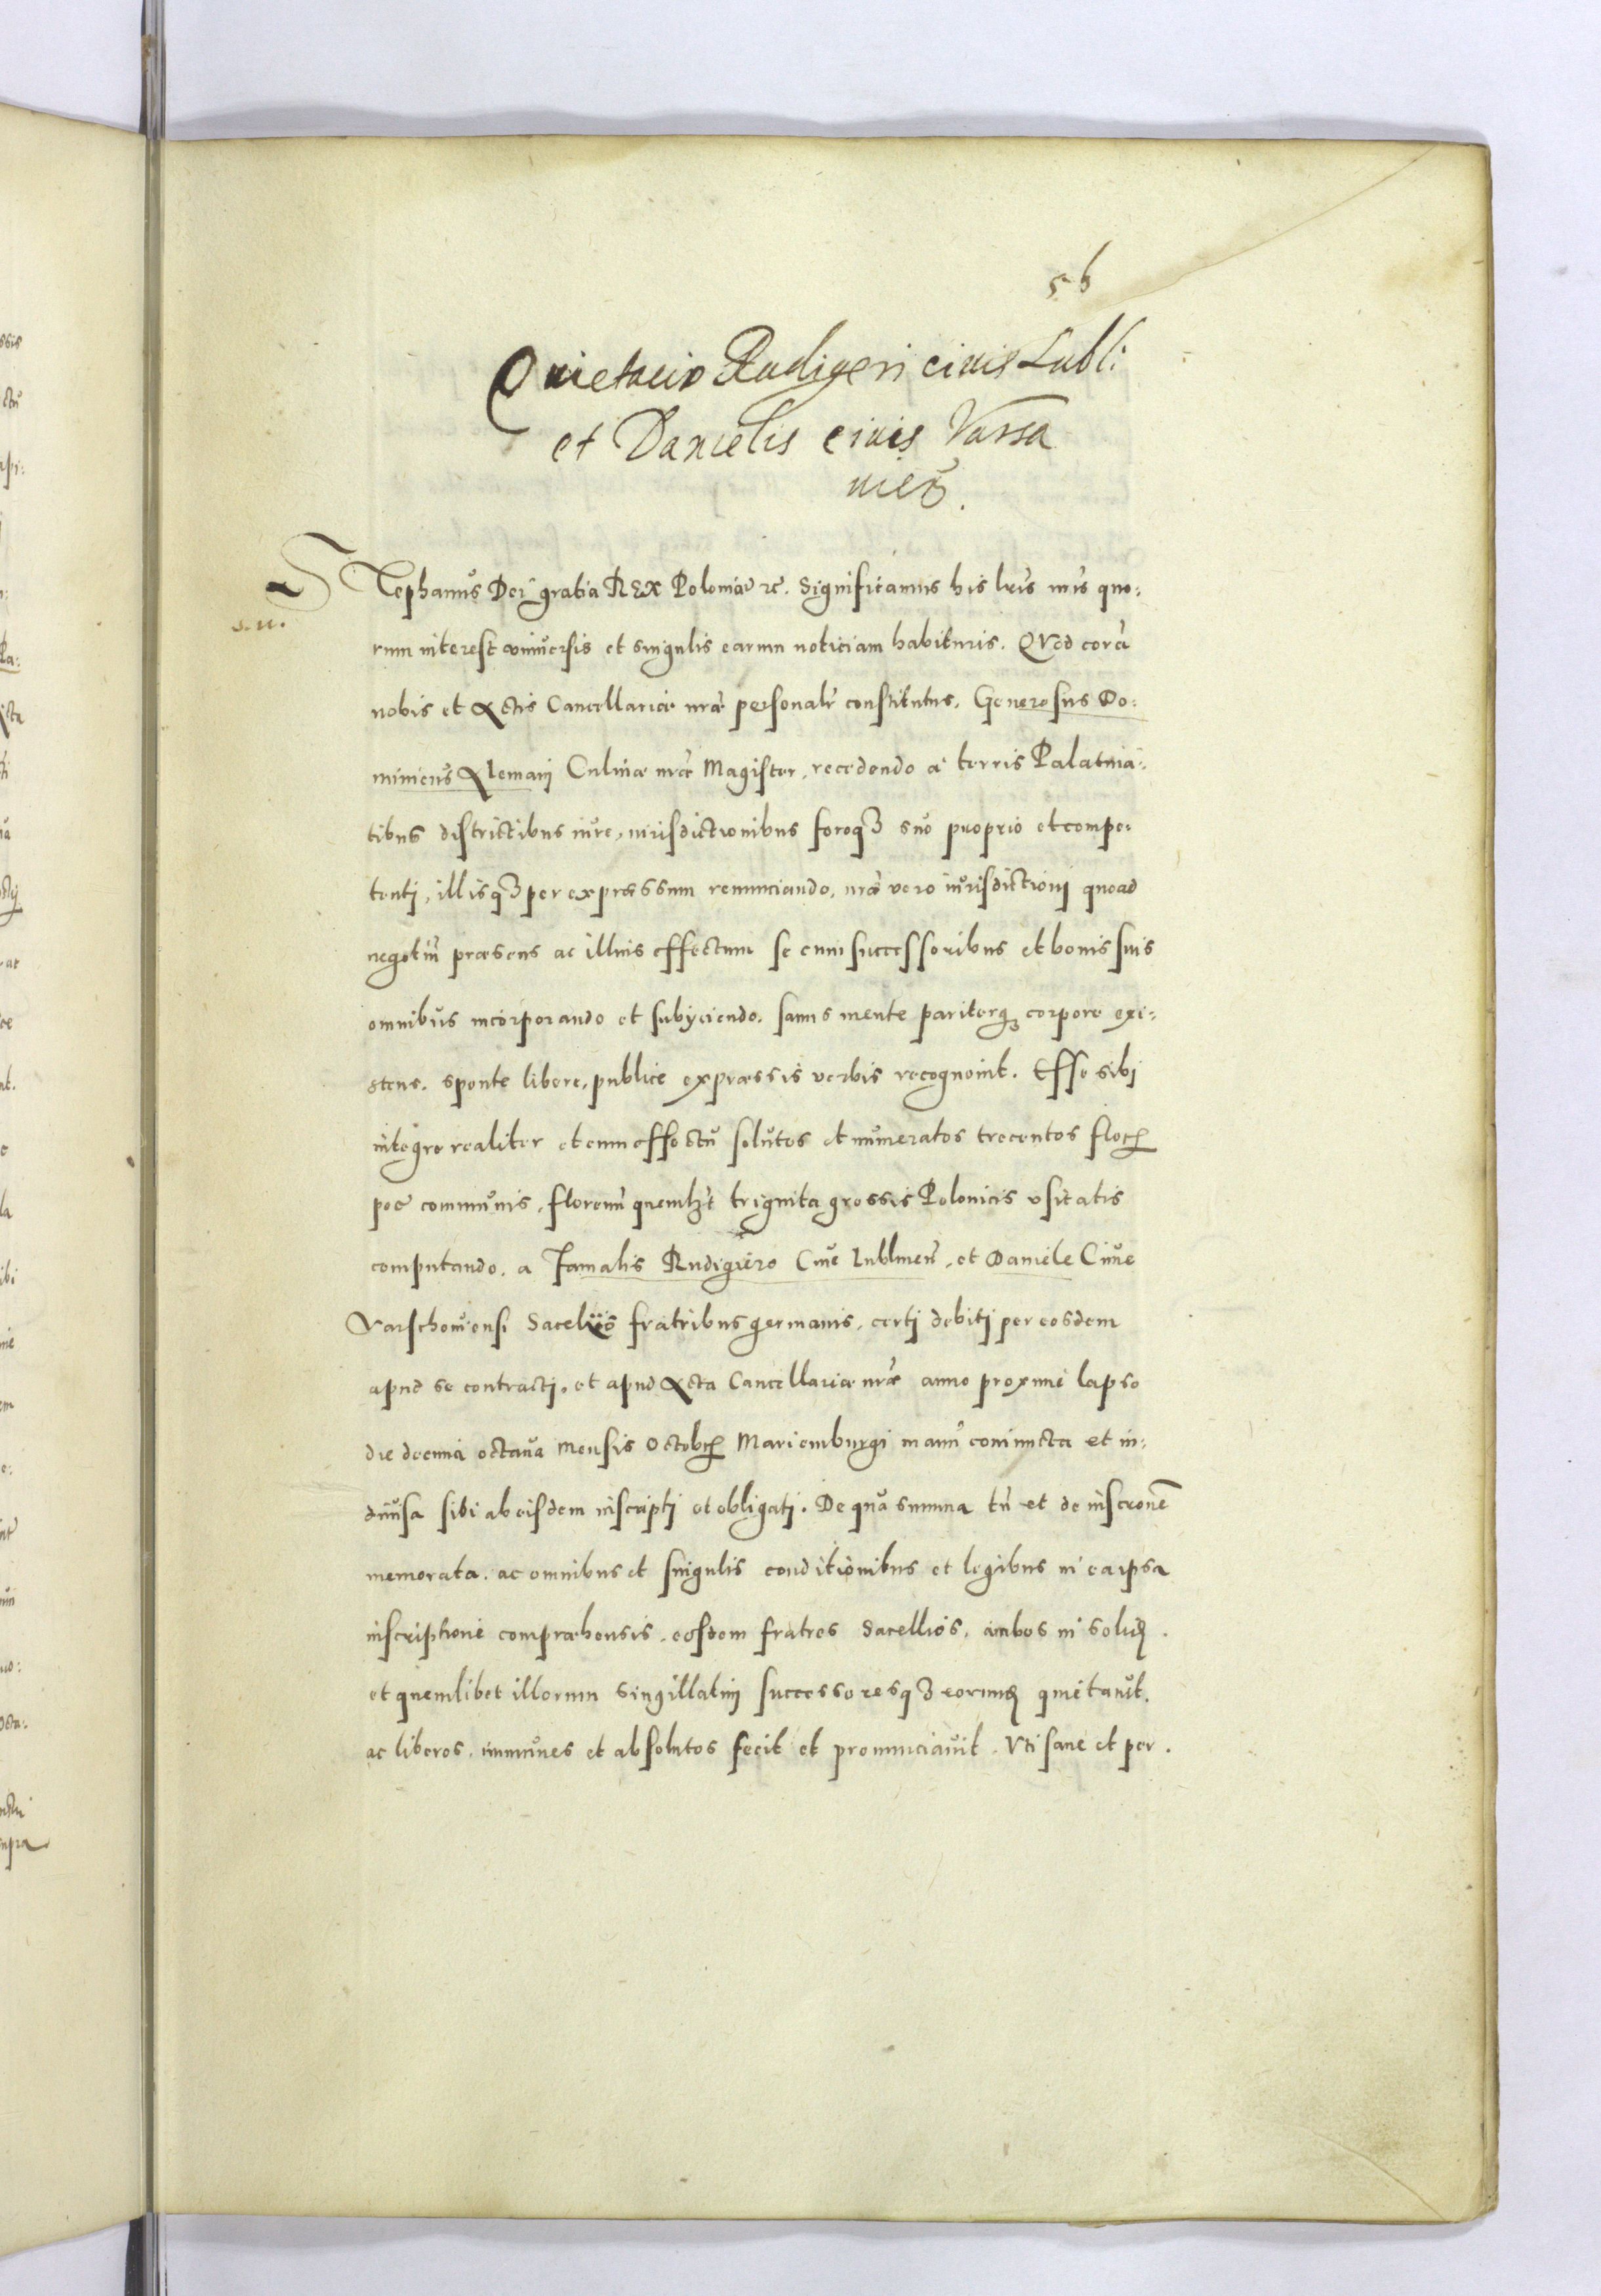 56
Quietacio Rudigeri ciuis Lubli:
et Danielis ciuis Varsa
uieñ.
STephanus Dei gratia REX Poloniæ etc. Significamus his lris nris quo:
s. u.
rum interest vniuersis et singulis earum noticiam habituris. QVod corã
nobis et Actis Cancellariæ nræ personalr constitutus, Generosus Do:
minicus Alemanj Culinæ nræ Magister, recedendo a terris Palatina:
tibus districtibus iure, iurisdictionibus foroqз suo proprio et compe:
tentj, illisqз per expræssum renunciando, nræ vero iurisdictionj quoad
negotiũ præsens ac illius effectum se cum successoribus et bonis suis
omnibus incorporando et subijciendo. sanus mente pariterqз corpore exi:
stens. sponte libere, publice expræssis verbis recognouit. Esse sibj
integre realiter et cum effectu solutos et numeratos trecentos floꝝ
poe communis, florenũ quemlzt triginta grossis Polonicis vsitatis
computando. a Famatis Rudigiero Ciue lublineñ, et Daniele Ciue
Varschouiensi Sacelijs fratribus germanis, certj debitj per eosdem
apud se contractj, et apud Acta Cancellariæ nræ anno proxime lapso
die decima octaua mensis Octobꝝ Mariemburgi manu coniuncta et in:
diuisa sibi ab eisdem inscriptj et obligatj. De qua summa tñ et de inscrone
memorata. ac omnibus et singulis conditionibus et legibus in ea ipsa
inscriptione compræhensis, eosdem fratres Sacellios, ambos in solidũ.
et quemlibet illorum singillatim successoresqз eorundẽ quietauit.
ac liberos, immunes et absolutos fecit et pronunciauit. Vti sane et per.